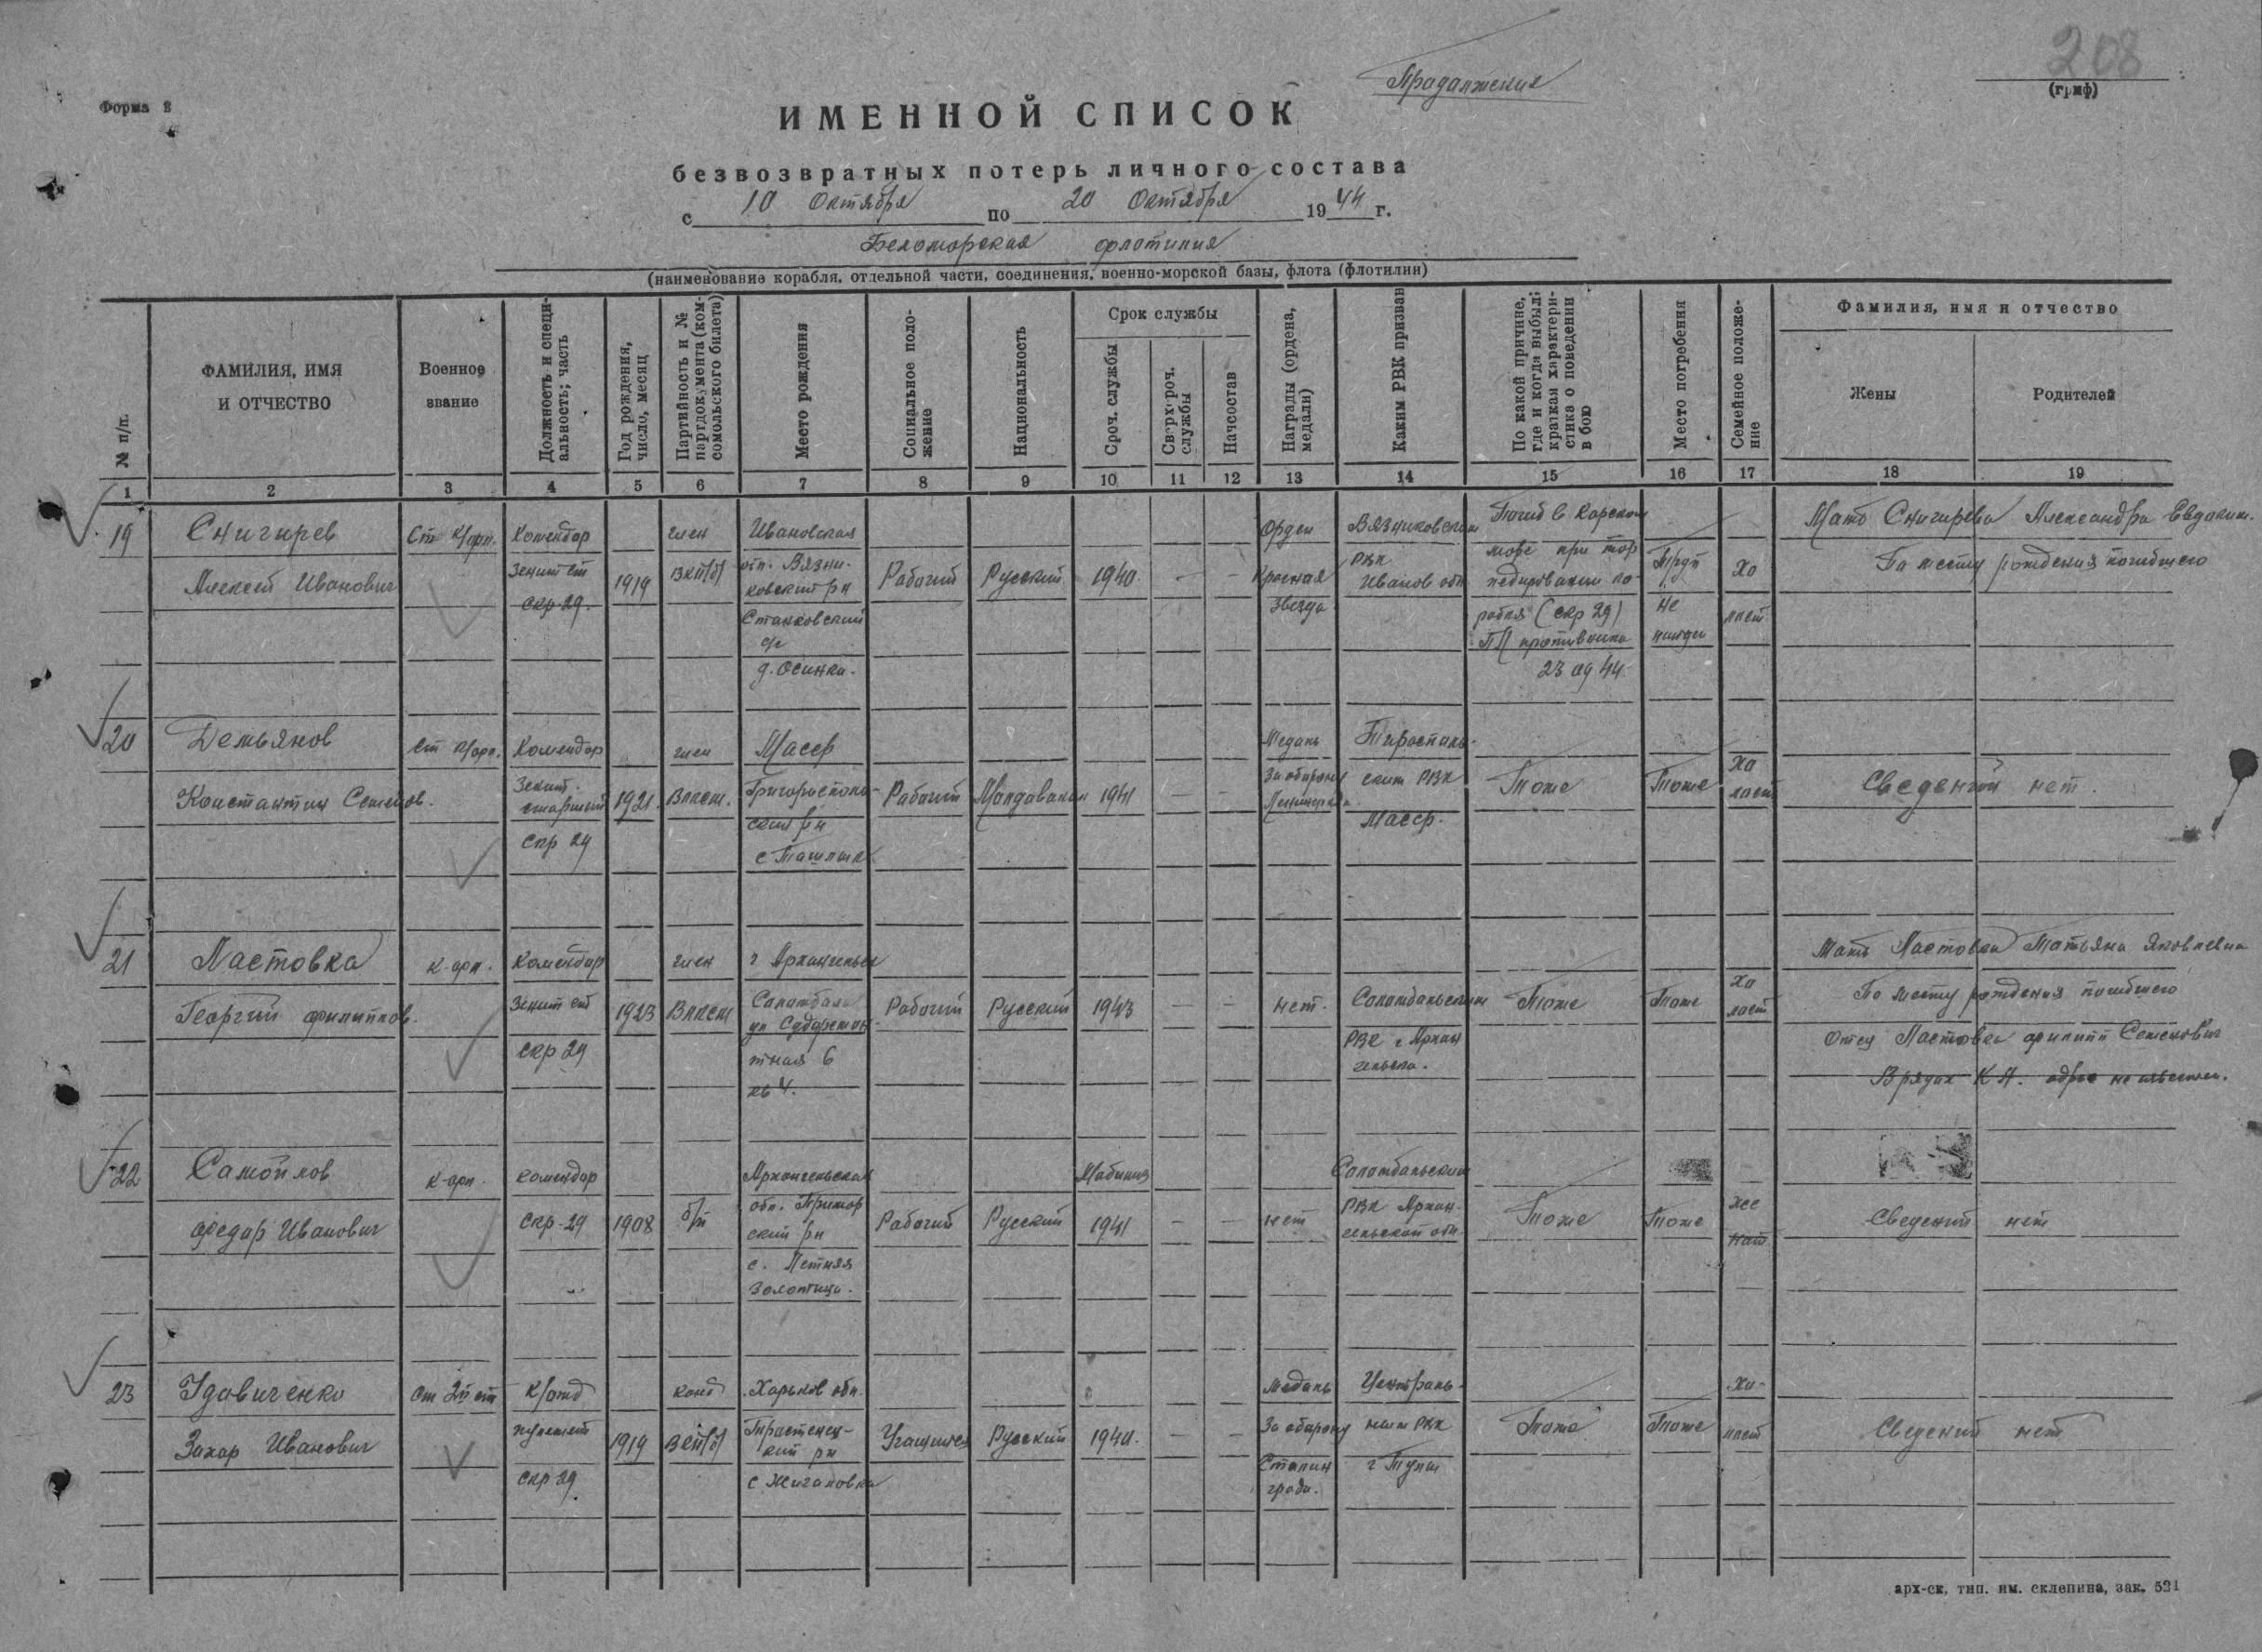 208
Продолжение
(гриф)
Форма 3
ИМЕННОЙ СПИСОК
безвозвратных потерь личного состава
с 10 Октября по 20 Октября 1944 г.
Беломорская флотилия
(наименование корабля, отдельной части, соединения, военно-морской базы, флота (флотилии)
№ п/п.
ФАМИЛИЯ, ИМЯ
И ОТЧЕСТВО
Военное
звание
Должность и специ-
альность; часть
Год рождения,
число, месяц
Партийность и №
партдокумента (ком-
сомольского билета)
Место рождения
Социальное поло-
жение
Национальность
Срок службы
Сроч. службы
Сверхсроч.
службы
Начсостав
Награды (ордена,
медали)
Каким РВК призван
По какой причине,
где и когда выбыл;
краткая характери-
стика о поведении
в бою
Место погребения
Семейное положе-
ние
Фамилия, имя и отчество
Жены
Родителей
1 2 3 4 5 6 7 8 9 10 11 12 13 14 15 16 17 18 19
19
Снигирев
Алексей Иванович
Ст к/орп.
Комендор
Зенит ст
скр-29.
1919
член
ВКП/б/
Ивановская
обл. Вязни-
ковский рн
Станковский
с/с
д. Осинки.
Рабочий
Русский
1940
-
-
Орден
Красная
Звезда
Вязниковским
РВК
Иванов обл
Погиб в Карском
море при тор
педировании ко-
рабля (скр 29)
ПЛ противника
23 09 44
Труп
не
найден
Хо
лост
Мать Снигирева Александра Евдоким.
По месту рождения погибшего
20
Демьянов
Константин Семенов.
Ст к/орп.
Комендор
Зенит.
старший
скр 29
1921
член
Влксм.
Масср
Григориополь-
ский рн
с Ташлык
Рабочий
Молдаванин
1941
-
-
Медаль
За оборону
Ленинграда
Тираспиль-
ским РВК
Масср.
Тоже
Тоже
Хо
лост
Сведений нет.
21
Ластовка
Георгий филиппов.
к-орп.
Комендор
Зенит ст
скр 29
1923
член
Влксм
г Архангельск
Соломбала
ул Содоремон-
тная 6
кв 4.
Рабочий
Русский
1943
-
-
нет.
Соломбальским
РВК г Архан
гельска.
Тоже
Тоже
Хо
лост
Мать Ластовка Татьяна Яковлевна
По месту рождения погибшего
Отец Ластовка филипп Семенович
В рядах К А. адрес не известен.
22
Самойлов
федор Иванович
к-орп.
комендор
скр-29
1908
б/п
Архангельская
обл. Примор
ский рн
с. Летняя
Золотица.
Рабочий
Русский
Мобилиз
1941
-
-
нет
Соломбальским
РВК Архан-
гельской обл.
Тоже
Тоже
Же
нат
Сведений нет
23
Удовиченко
Захар Иванович
Ст 2й ст
К/отд
пулемет
скр 29
1919
канд
ВКП/б/
Харьков обл.
Тростенец-
кий рн
с Жигаловка
Учащийся
Русский
1940.
-
-
Медаль
За оборону
Сталин
града.
Централь-
ным РВК
г Тулы
Тоже
Тоже
Хо-
лост
Сведений нет
арх-ск, тип. им. склепина, зак. 521